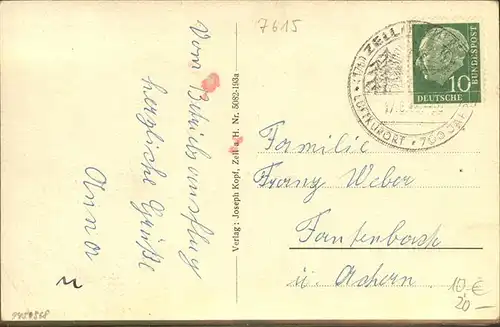 7615
Vom Betriebsausflug
herzliche Grüße
Anna
Verlag: Joseph Kopf, Zell a. H. Nr. 5082-193a
(17b) ZELL
LUFTKURORT · 700 JAHRE
DEUTSCHE
BUNDESPOST
10
Familie
Franz Weber
Fautenbach
ü. Achern
10.-€
20.-